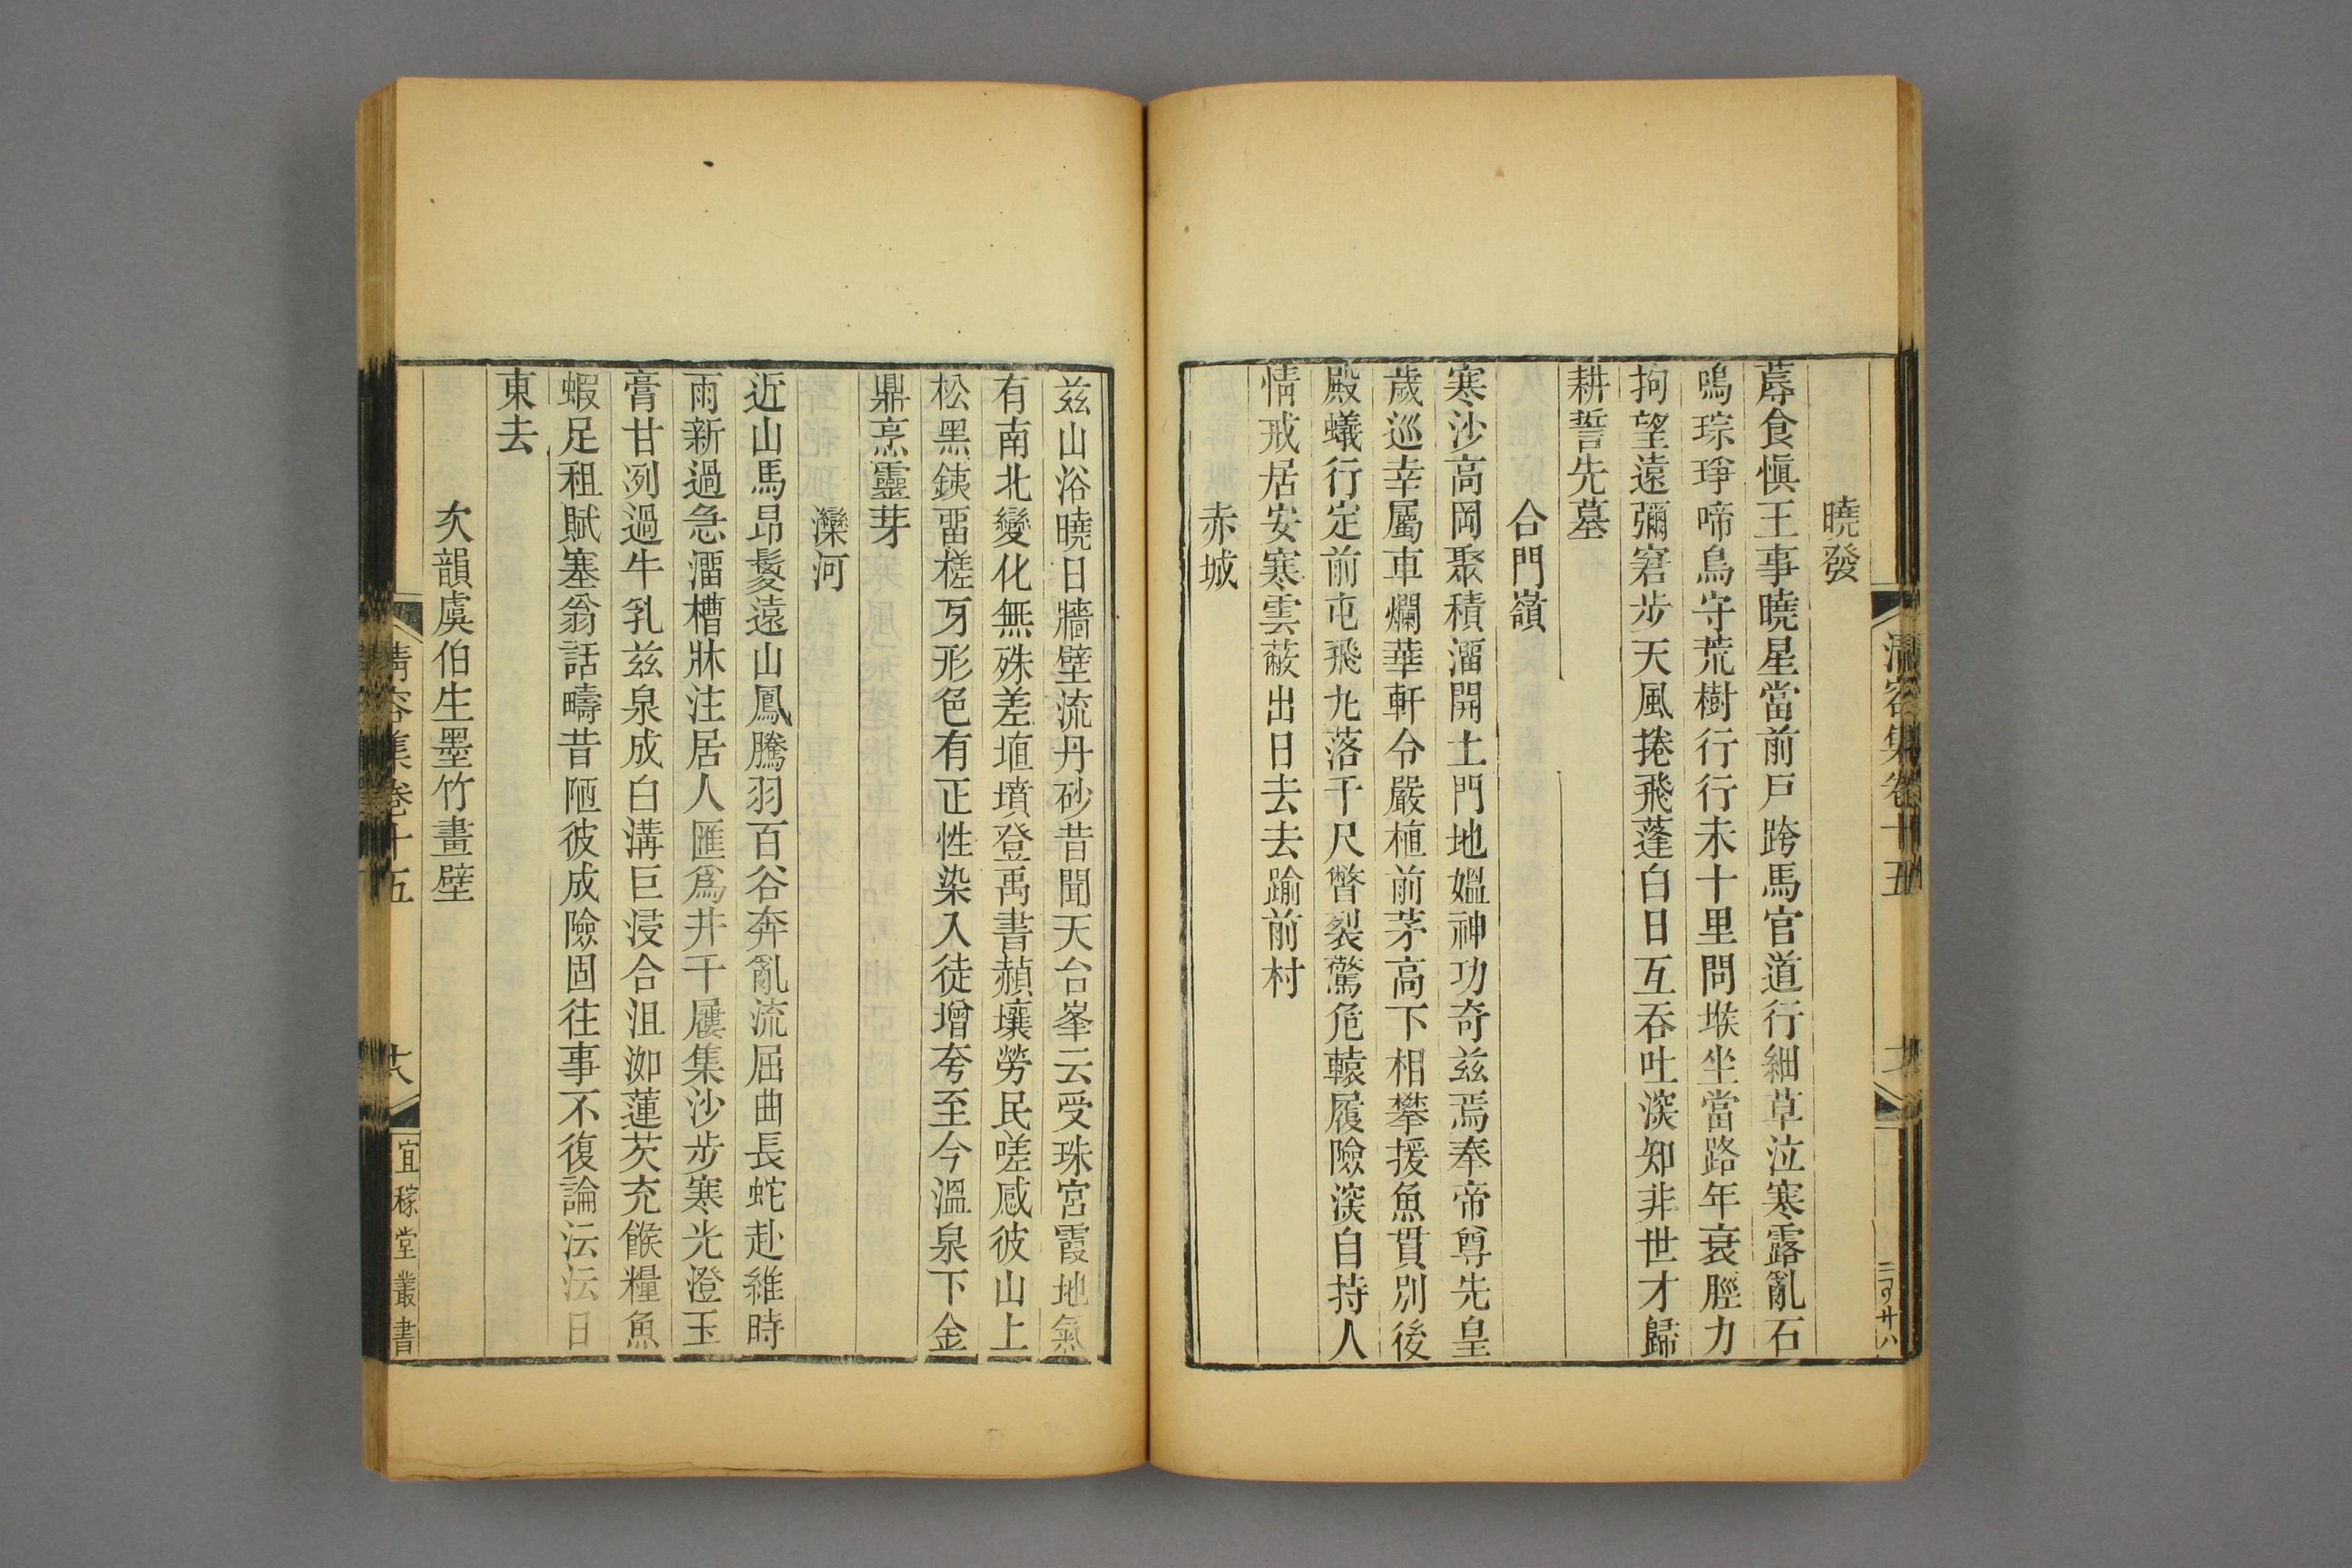 曉發
蓐食愼王事曉星當前戶跨馬官道行細草泣寒露亂石
鳴琮琤啼鳥守荒樹行行未十里問堠坐當路年衰脛力
拘望遠彌窘步天風捲飛蓬白日互吞吐深知非世才歸
耕誓先墓
合門嶺
寒沙高岡聚積溜開土門地媼神功奇兹焉奉帝尊先皇
歲巡幸屬車爛華軒令嚴植前茅高下相攀援魚貫別後
殿蟻行定前屯飛丸落千尺瞥裂驚危轅履險深自持人
情戒居安寒雲蔽出日去去踰前村
赤城
兹山浴曉日牆壁流丹砂昔聞天台峯云受珠宮霞地氣
有南北變化無殊差埴墳登禹書赬壤勞民嗟感彼山上
松黑銕畱槎牙形色有正性染入徒增夸至今溫泉下金
鼎烹靈芽
灤河
近山馬昂鬉遠山鳳騰羽百谷奔亂流屈曲長蛇赴維時
雨新過急溜槽牀注居人匯爲井千屨集沙步寒光澄玉
膏甘冽過牛乳兹泉成白溝巨浸合沮洳蓮芡充餱糧魚
蝦足租賦塞翁話疇昔陋彼成險固往事不復論沄沄日
東去
次韻虞伯生墨竹畫壁
清容集卷十五
宜稼堂叢書